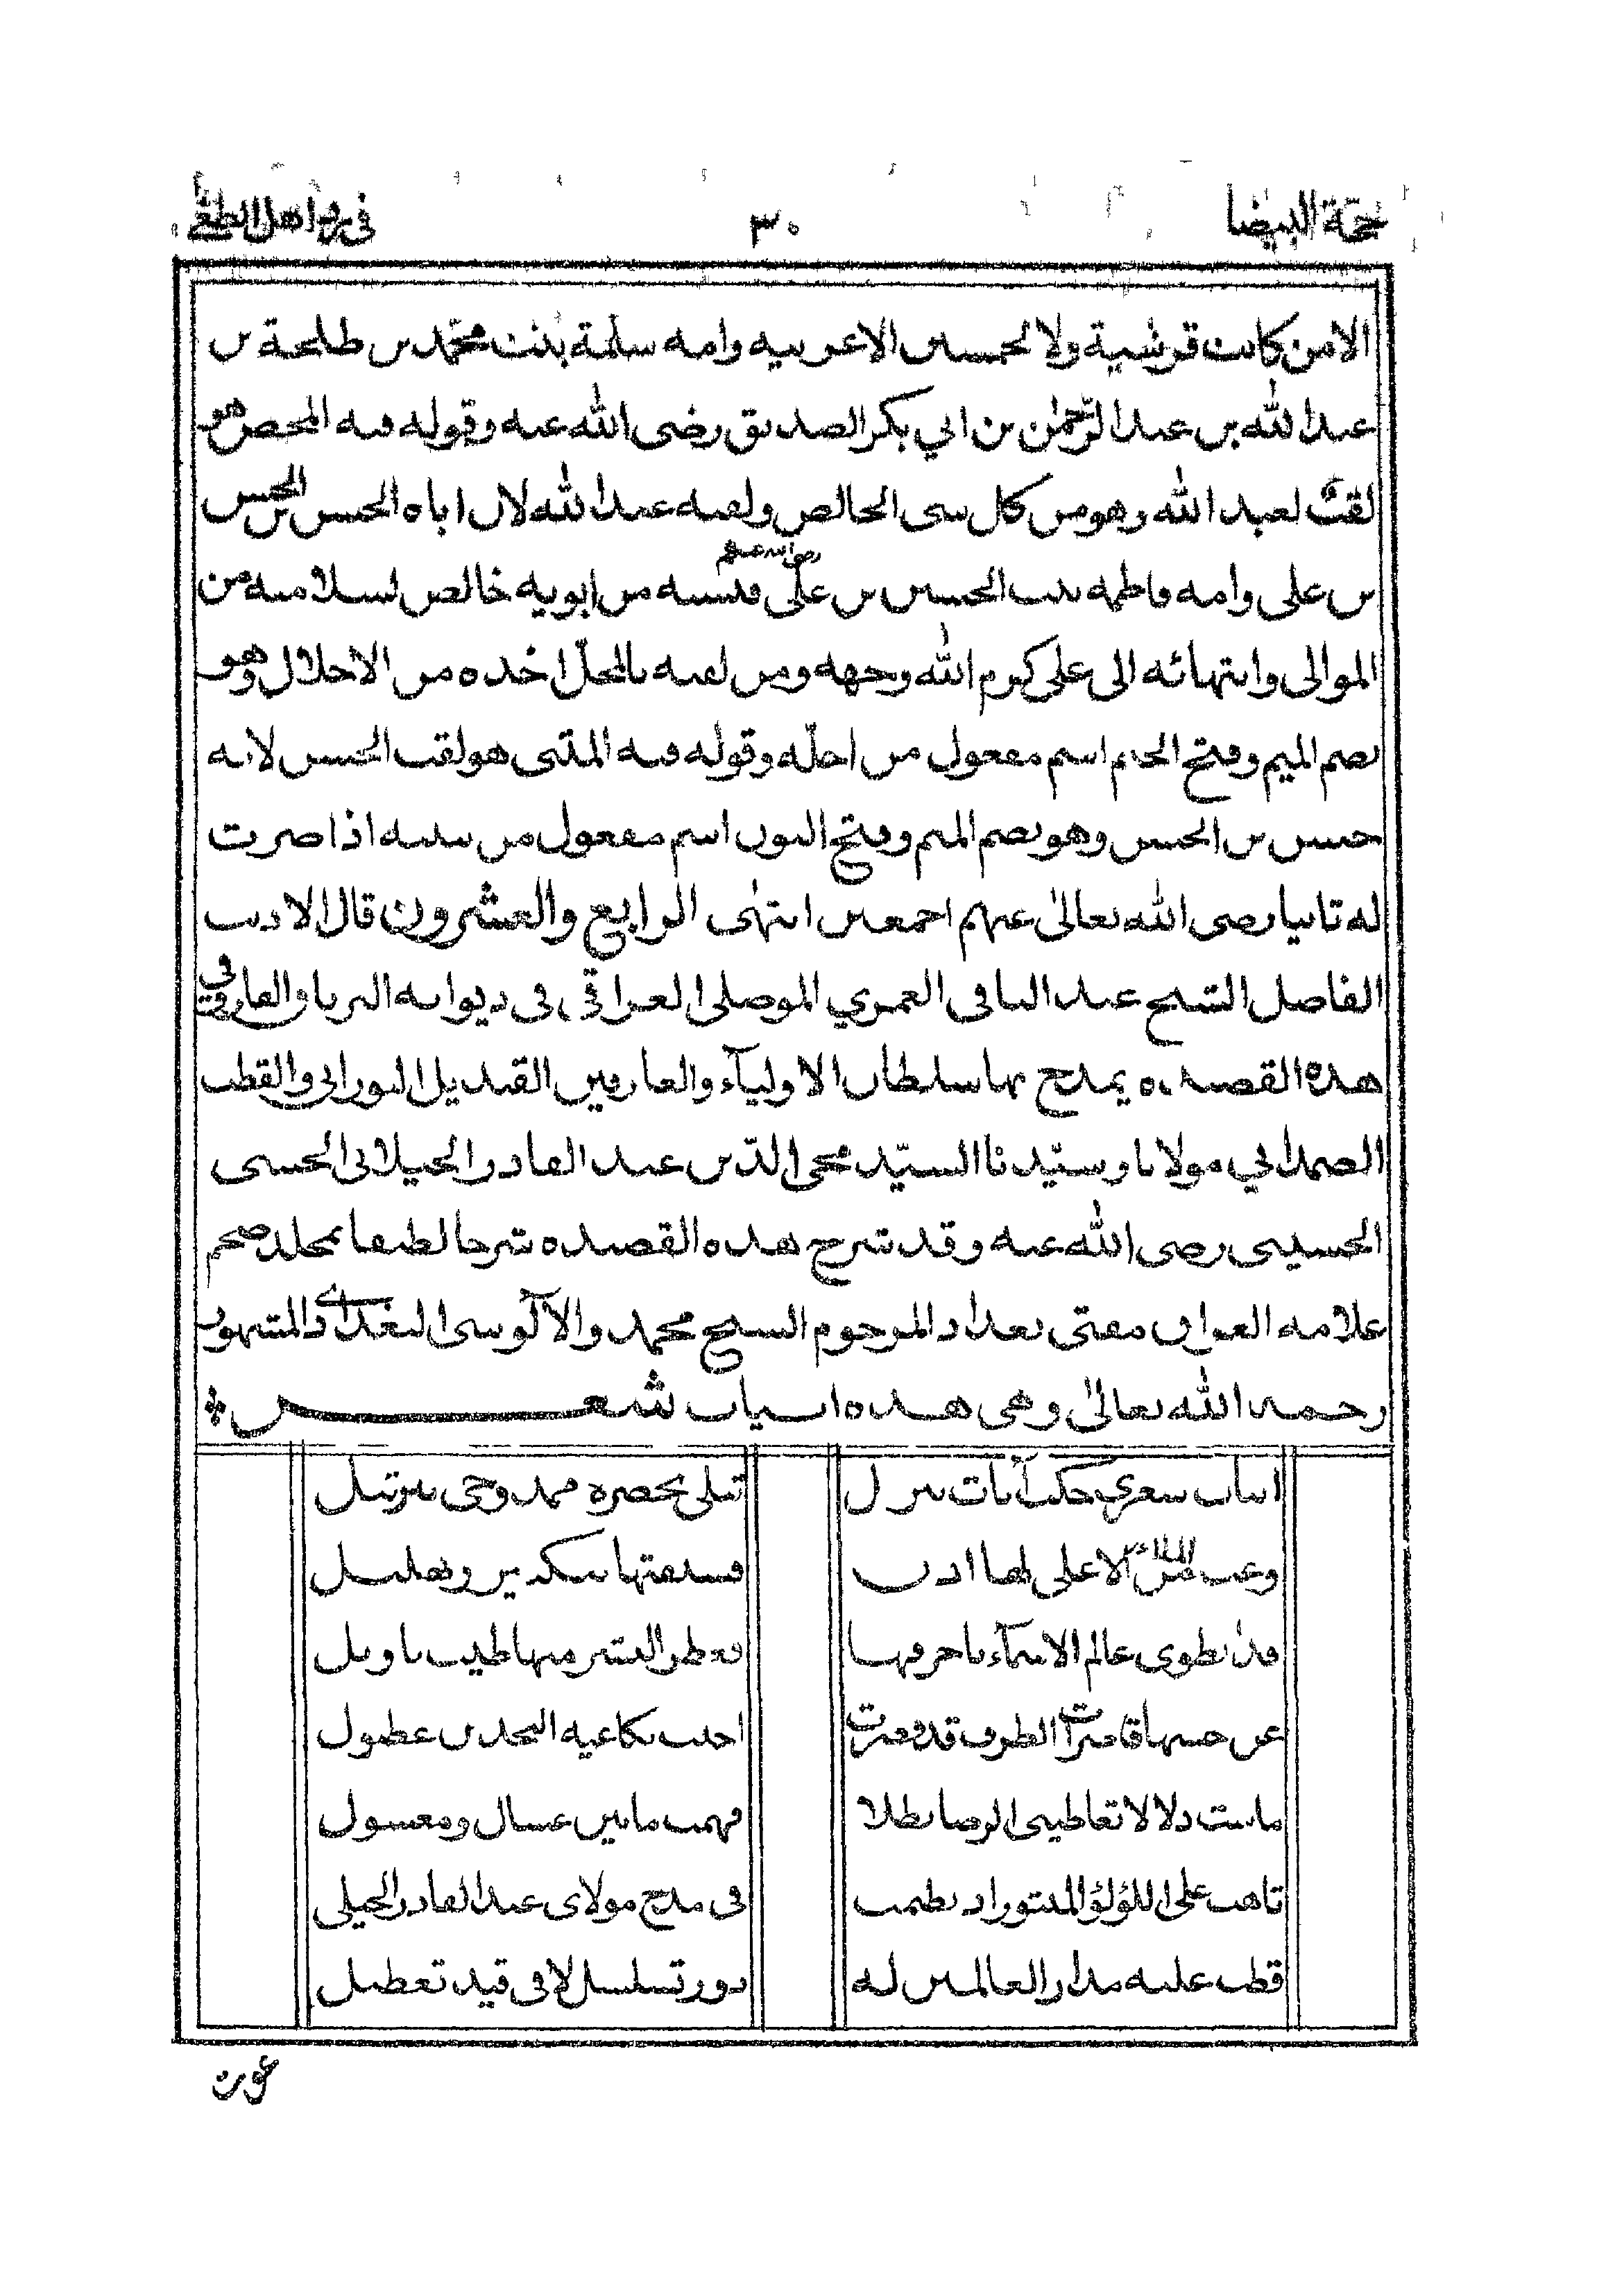 حجة البيضا ٣٠ في رد اهل الطغى
الا من كانت قرشية ولا لحمسين الا عربيه وامه سلمة بنت محمد بن طلحة بن
عبد الله بن عبد الرحمن بن ابي بكر الصديق رضى الله عنه وقوله فيه المحض هو
لقب لعبد الله وهو من كل شى الخالص ولقبه عبد الله لان اباه الحسن بن الحسن
بن على وامه فاطمه بنت الحسين بن على رضى الله عنهم فنسبه من ابويه خالص لسلامته من
الموالى وانتهائه الى على كرم الله وجهه ومن لقبه بالمجلّ اخذه من الاجلال وهو
بضم الميم وفتح الجيم اسم مفعول من اجلّه وقوله فيه المثنى هو لقب الحسن لانه
حسن بن الحسن وهو بضم الميم وفتح النون اسم مفعول من ثنيته اذا صرت
له ثانيا رضى الله تعالى عنهم اجمعين انتهى الرابع والعشرون قال الاديب
الفاضل الشيخ عبد الباقى العمري الموصلى العراقى فى ديوانه الترياق الفاروقي
هذه القصيده يمدح بها سلطان الاوليآء والعارفين القنديل النورانى والقطب
الصمداني مولانا وسيّدنا السيّد محى الدّين عبد القادر الجيلانى الحسنى
الحسينى رضى الله عنه وقد شرح هذه القصيده شرحا لطيفا بمجلد ضخم
علامه العراق مفتى بغداد المرحوم الشيخ محمد والآلوسى البغدادى المشهور
رحمه الله تعالى وهى هذه ابيات شعر
ابيات شعري حكت آيات تنزيل تتلى بحضره ممدوحى بترتيل
وعت من الملاء الاعلى لها اذن فسبحتها بتكبير وتهليل
فذ تطوى عالم الاسمآء باحرفها تعطر النشر منها طيب تاويل
عن حسنها قاصرات الطرف قد قصرت احلت بكاعبه النجدين عطبول
ماست دلالا تعاطينى الرضا بطلا فهمت ما بين عسال ومعسول
تاهت على اللؤلؤ المنثور اذ نظمت فى مدح مولاى عبد القادر الجيلى
قطب عليه مدار العالمين له دور تسلسل لا فى قيد تعطيل
غوث